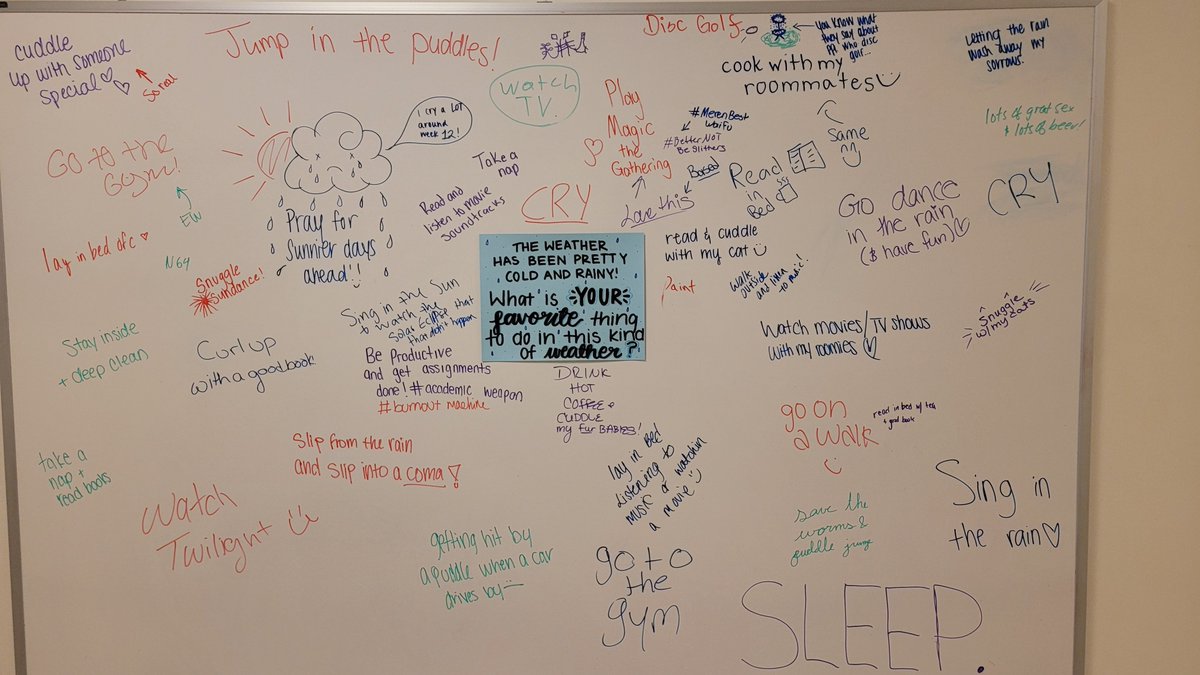 cuddle
up with someone
special
so real
Jump in the puddles!
watch
T.V.
Disc Golf
you know what
they say about
who disc
golf...
cook with my
roommates
Same
Letting the rain
wash away my
sorrows.
lots of great sex
& lots of beer!
Go to the
Gym!
EW
I cry a lot
around
week 12!
Pray for
Sunnier days
ahead!
Take a
nap
Read and
listen to movie
soundtracks
CRY
Play
Magic
the
Gathering
Love this
#MerenBest
Waifu
#BetterNOT
Be Slithers
Based
Read
in
Bed
read & cuddle
with my cat
Go dance
in the rain
(& have fun)
CRY
lay in bed ofc
N64
Snuggle
Sundance!
THE WEATHER
HAS BEEN PRETTY
COLD AND RAINY!
What is YOUR
favorite thing
to do in this kind
of weather?
Paint
walk
outside
and listen
to music!
Stay inside
+ deep clean
Curl up
with a good book
Sing in the Sun
& watch the
Solar Eclipse that
didn't happen
Be Productive
and get assignments
done! #academic weapon
#burnout machine
Watch movies/TV shows
with my roomies
Snuggle
w/ my cats
DRINK
HOT
COFFEE &
CUDDLE
my fur BABIES!
go on
a walk
read in bed w/ tea
& good book
take a
nap +
read books
Slip from the rain
and slip into a coma!
lay in bed
listening to
music or watchin
a movie
Watch
Twilight
getting hit by
a puddle when a car
drives by
save the
worms &
puddle jump
Sing in
the rain
go to
the
gym
SLEEP.